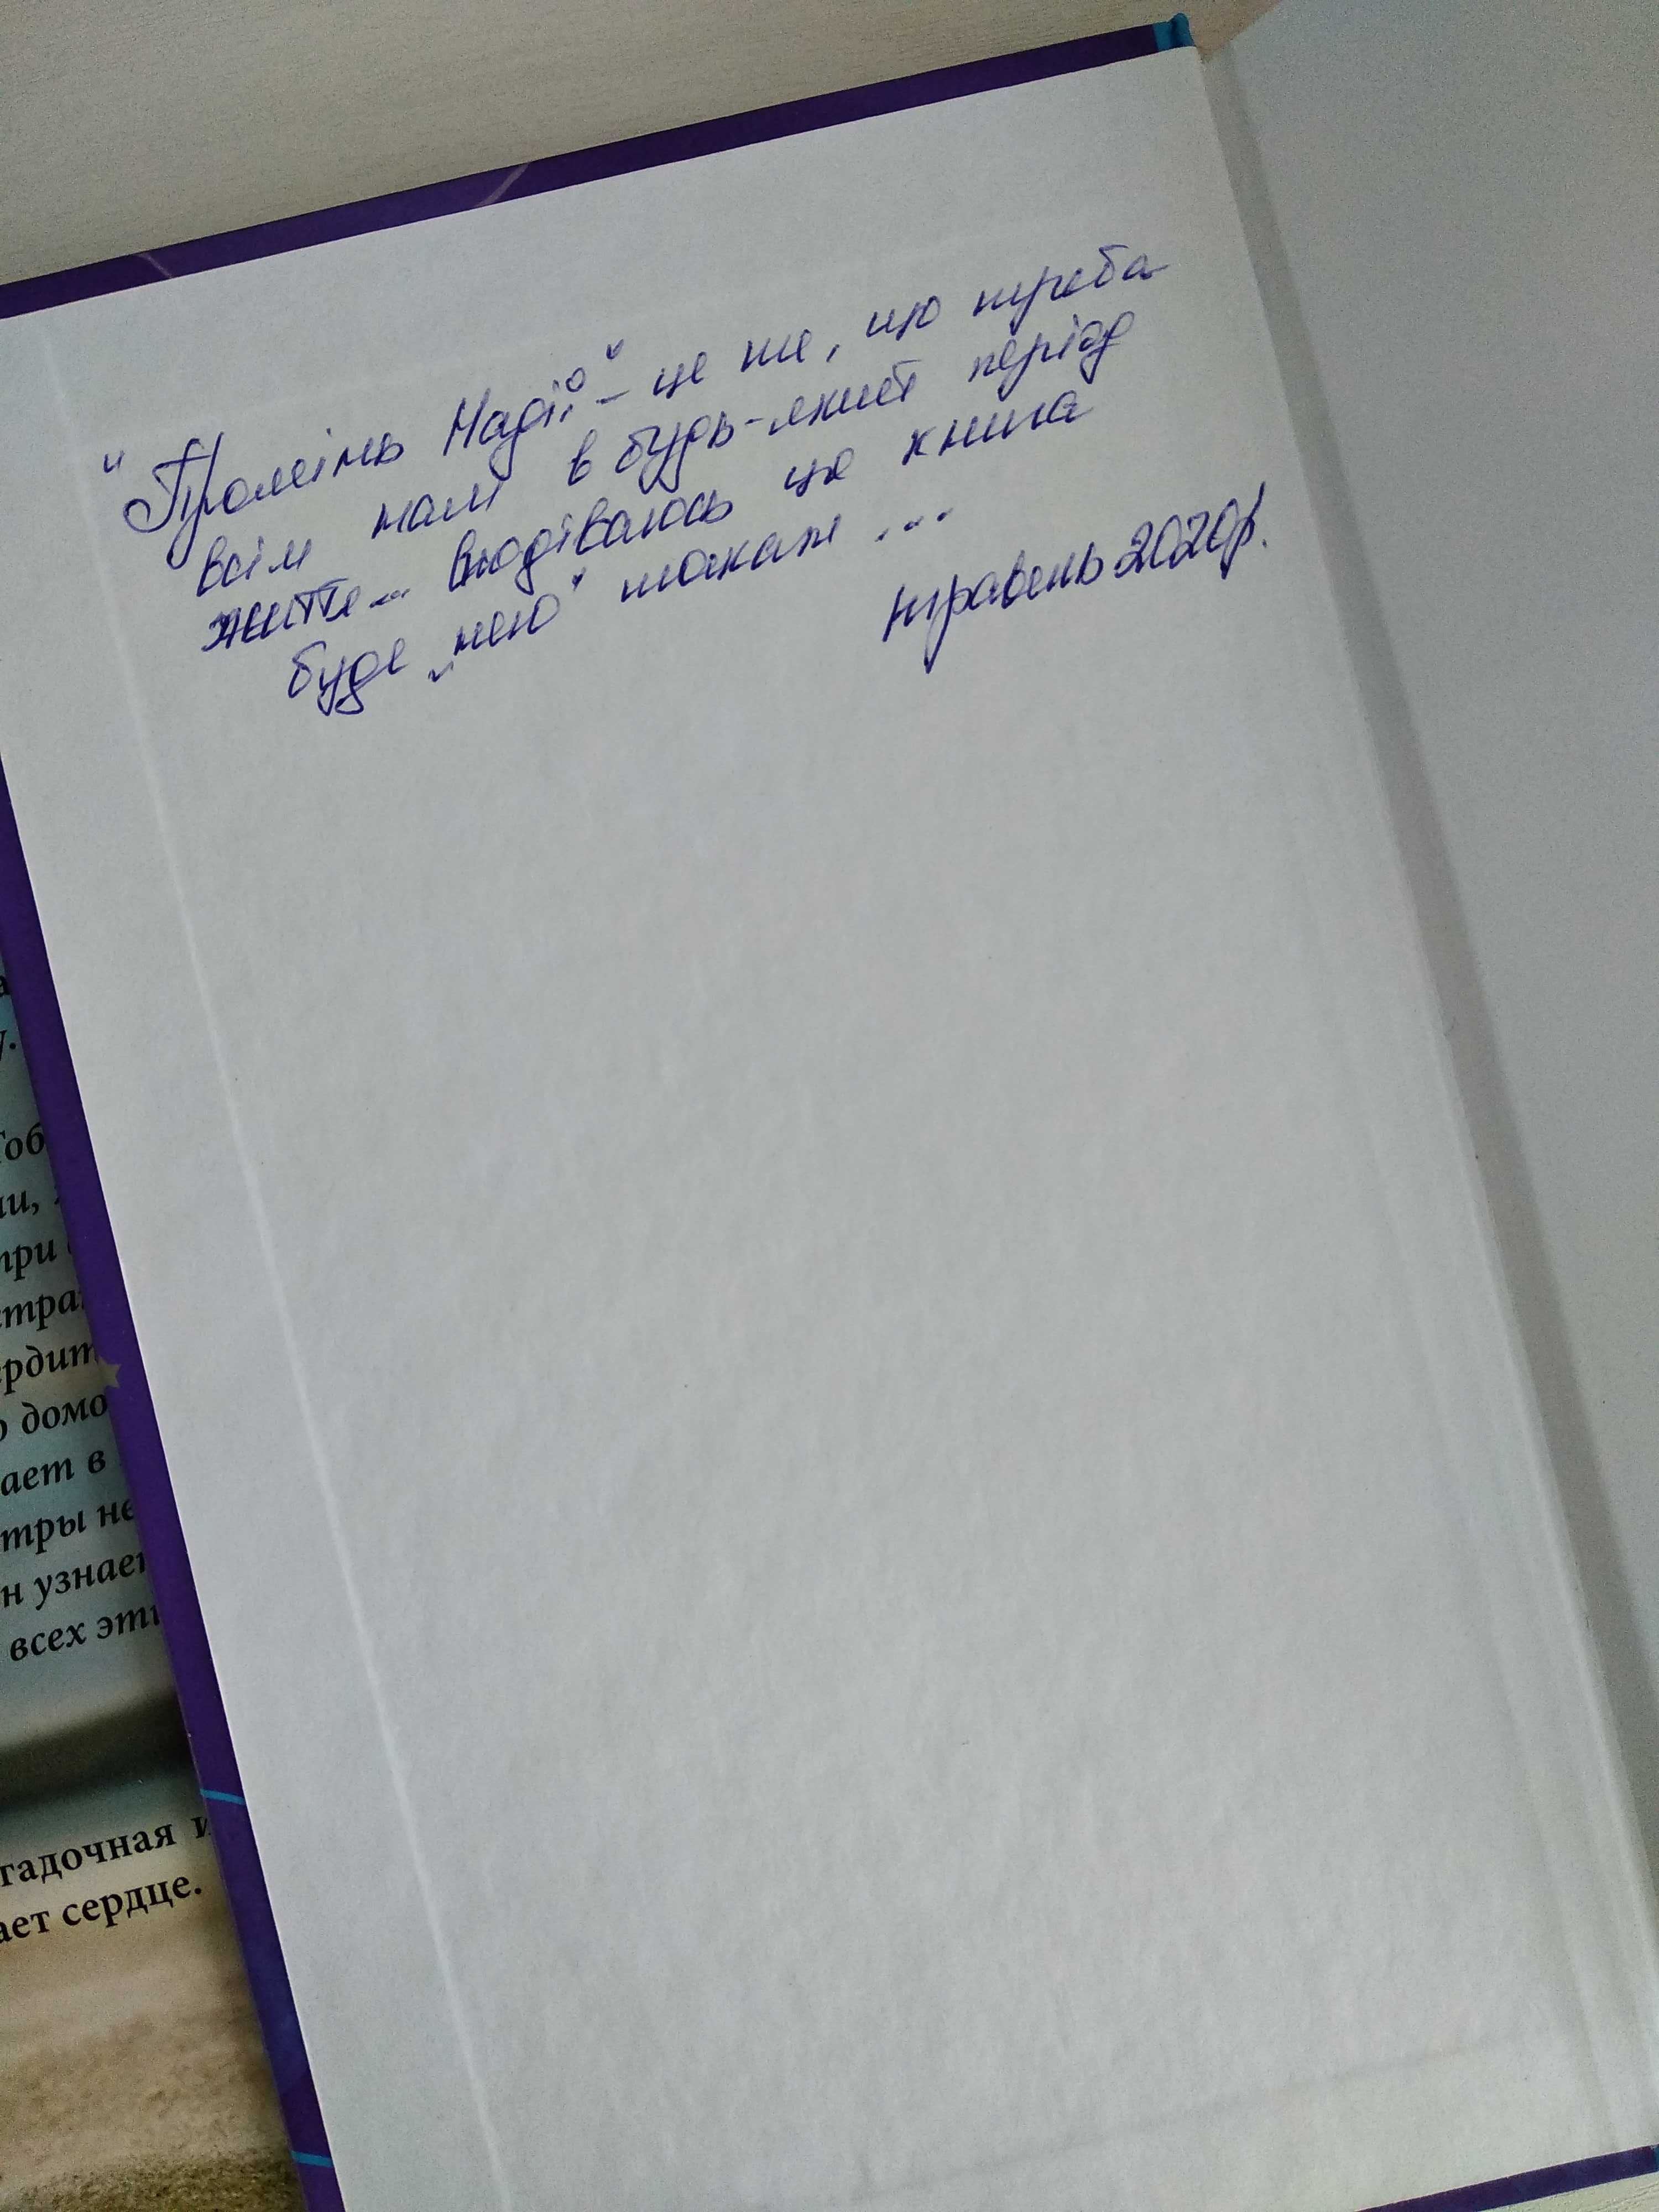 "Промінь Надії" - це те, що треба
всім нам в будь-який період
життя... Сподіваюсь ця книга
буде "нею" також...
травень 2020р.
а
у.
Тоб
ли,
три
стра
ердит
о домо
ает в
тры не
н узнает
всех эти
гадочная и
ает сердце.